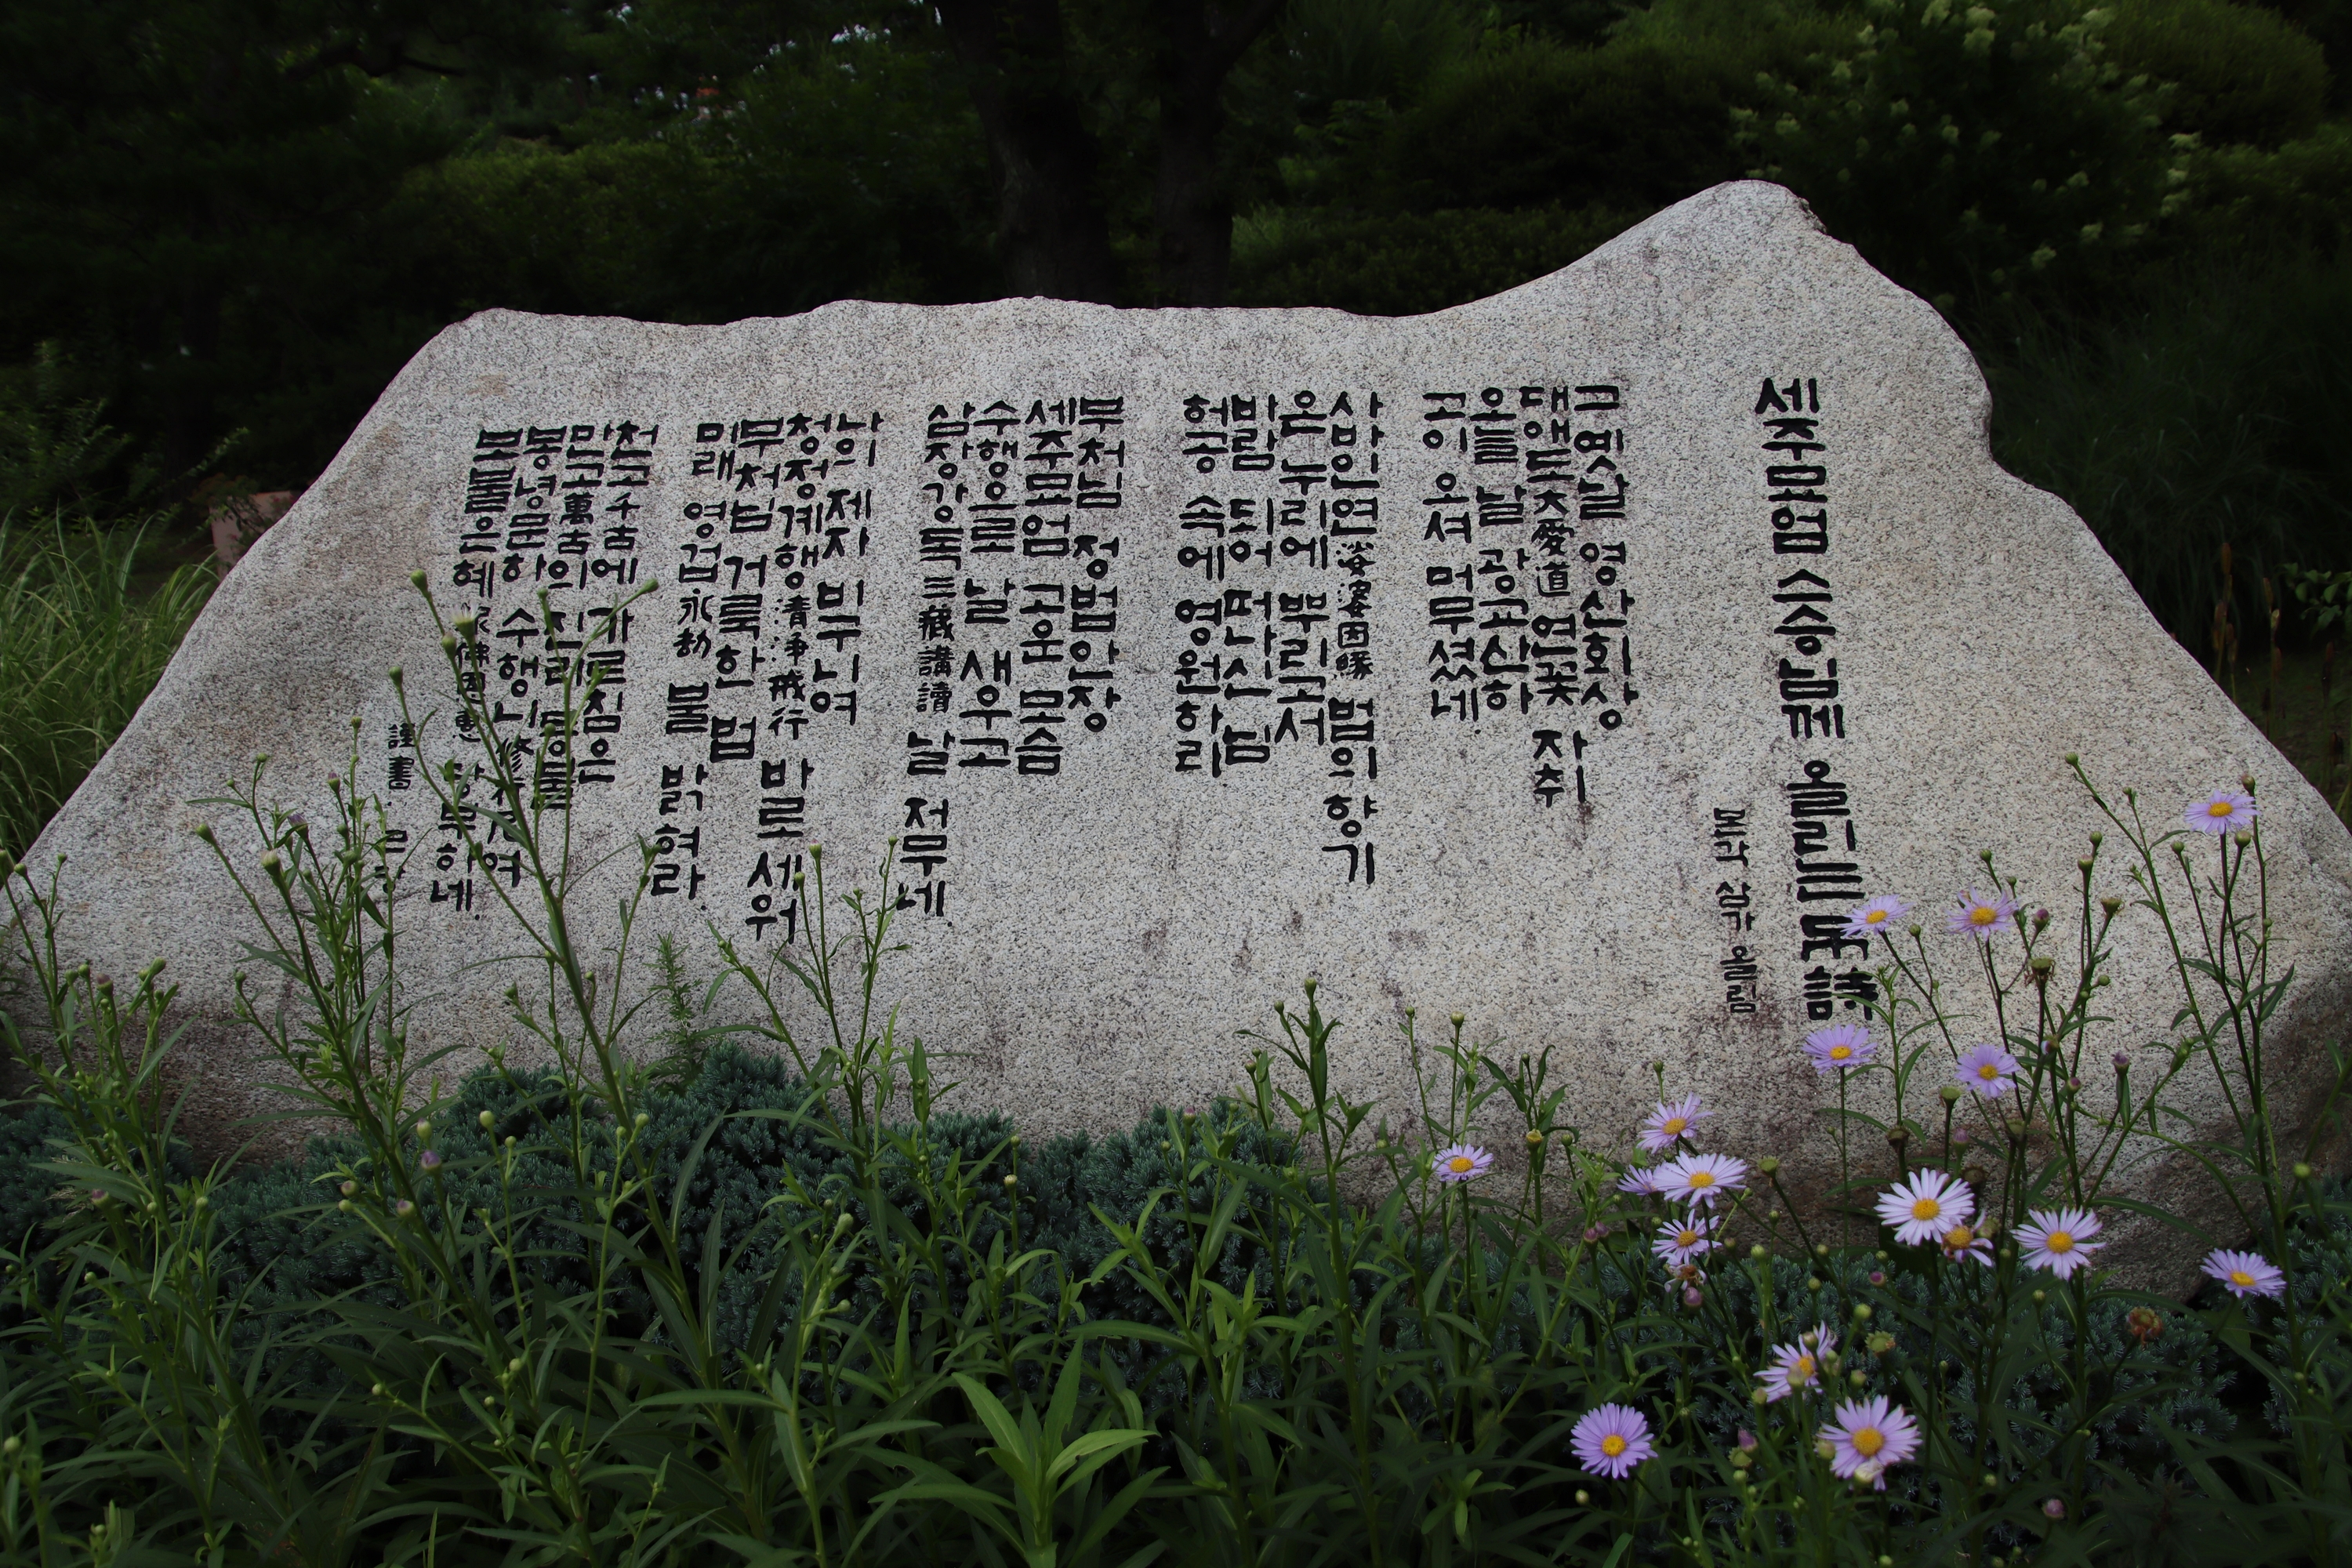 세주묘엄 스승님께 올리는 시詩
본각 삼가 올림
그 옛날 영산회상
대애도大愛道 연꽃 자취
오늘 날 광교산하
고이 오셔 머무셨네.
사바인연娑婆因緣 법의 향기
온 누리에 뿌리고서
바람 되어 떠나신 님
허공 속에 영원하리
부처님 정법안장
세주묘엄 고운 모습
수행으로 날 새우고
삼장강독三藏講讀 날 저무네.
나의 제자 비구니여
청정계행淸淨戒行 바로 세워
부처님 거룩한 법
미래 영겁永劫 불 밝혀라.
천고千古에 가르침은
만고萬古의 진리 등불
봉녕문하 수행니修行尼여
보불은혜 하네.
謹書.